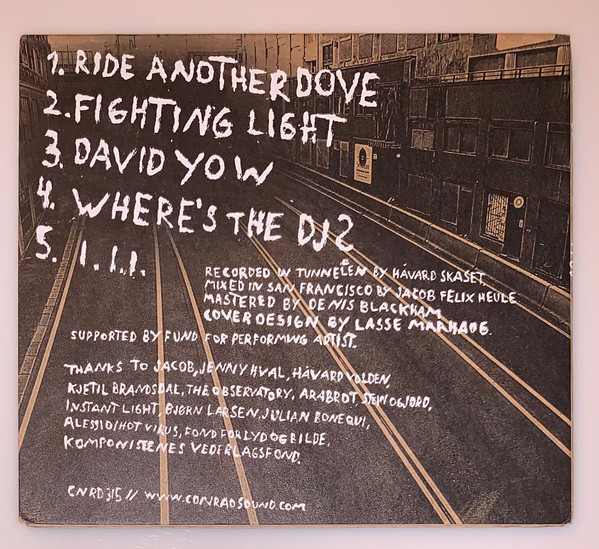 1. RIDE ANOTHER DOVE
2. FIGHTING LIGHT
3. DAVID YOW
4. WHERE'S THE DJ?
5. I.I.I.
RECORDED IN TUNNELEN BY HÅVARD SKASET,
MIXED IN SAN FRANCISCO BY JACOB FELIX HEULE
MASTERED BY DENIS BLACKHAM
COVER DESIGN BY LASSE MARHAUG.
SUPPORTED BY FUND FOR PERFORMING ARTIST.
THANKS TO JACOB, JENNY HVAL, HÅVARD VOLDEN,
KJETIL BRANDSDAL, THE OBSERVATORY, ÅRABROT, STEIN OGJORD,
INSTANT LIGHT, BJØRN LARSEN, JULIAN BONEQUI,
ALESSIO/HOT VIRUS, FOND FOR LYD OG BILDE,
KOMPONISTENES VEDERLAGSFOND.
CNRD315 // WWW.CONRADSOUND.COM